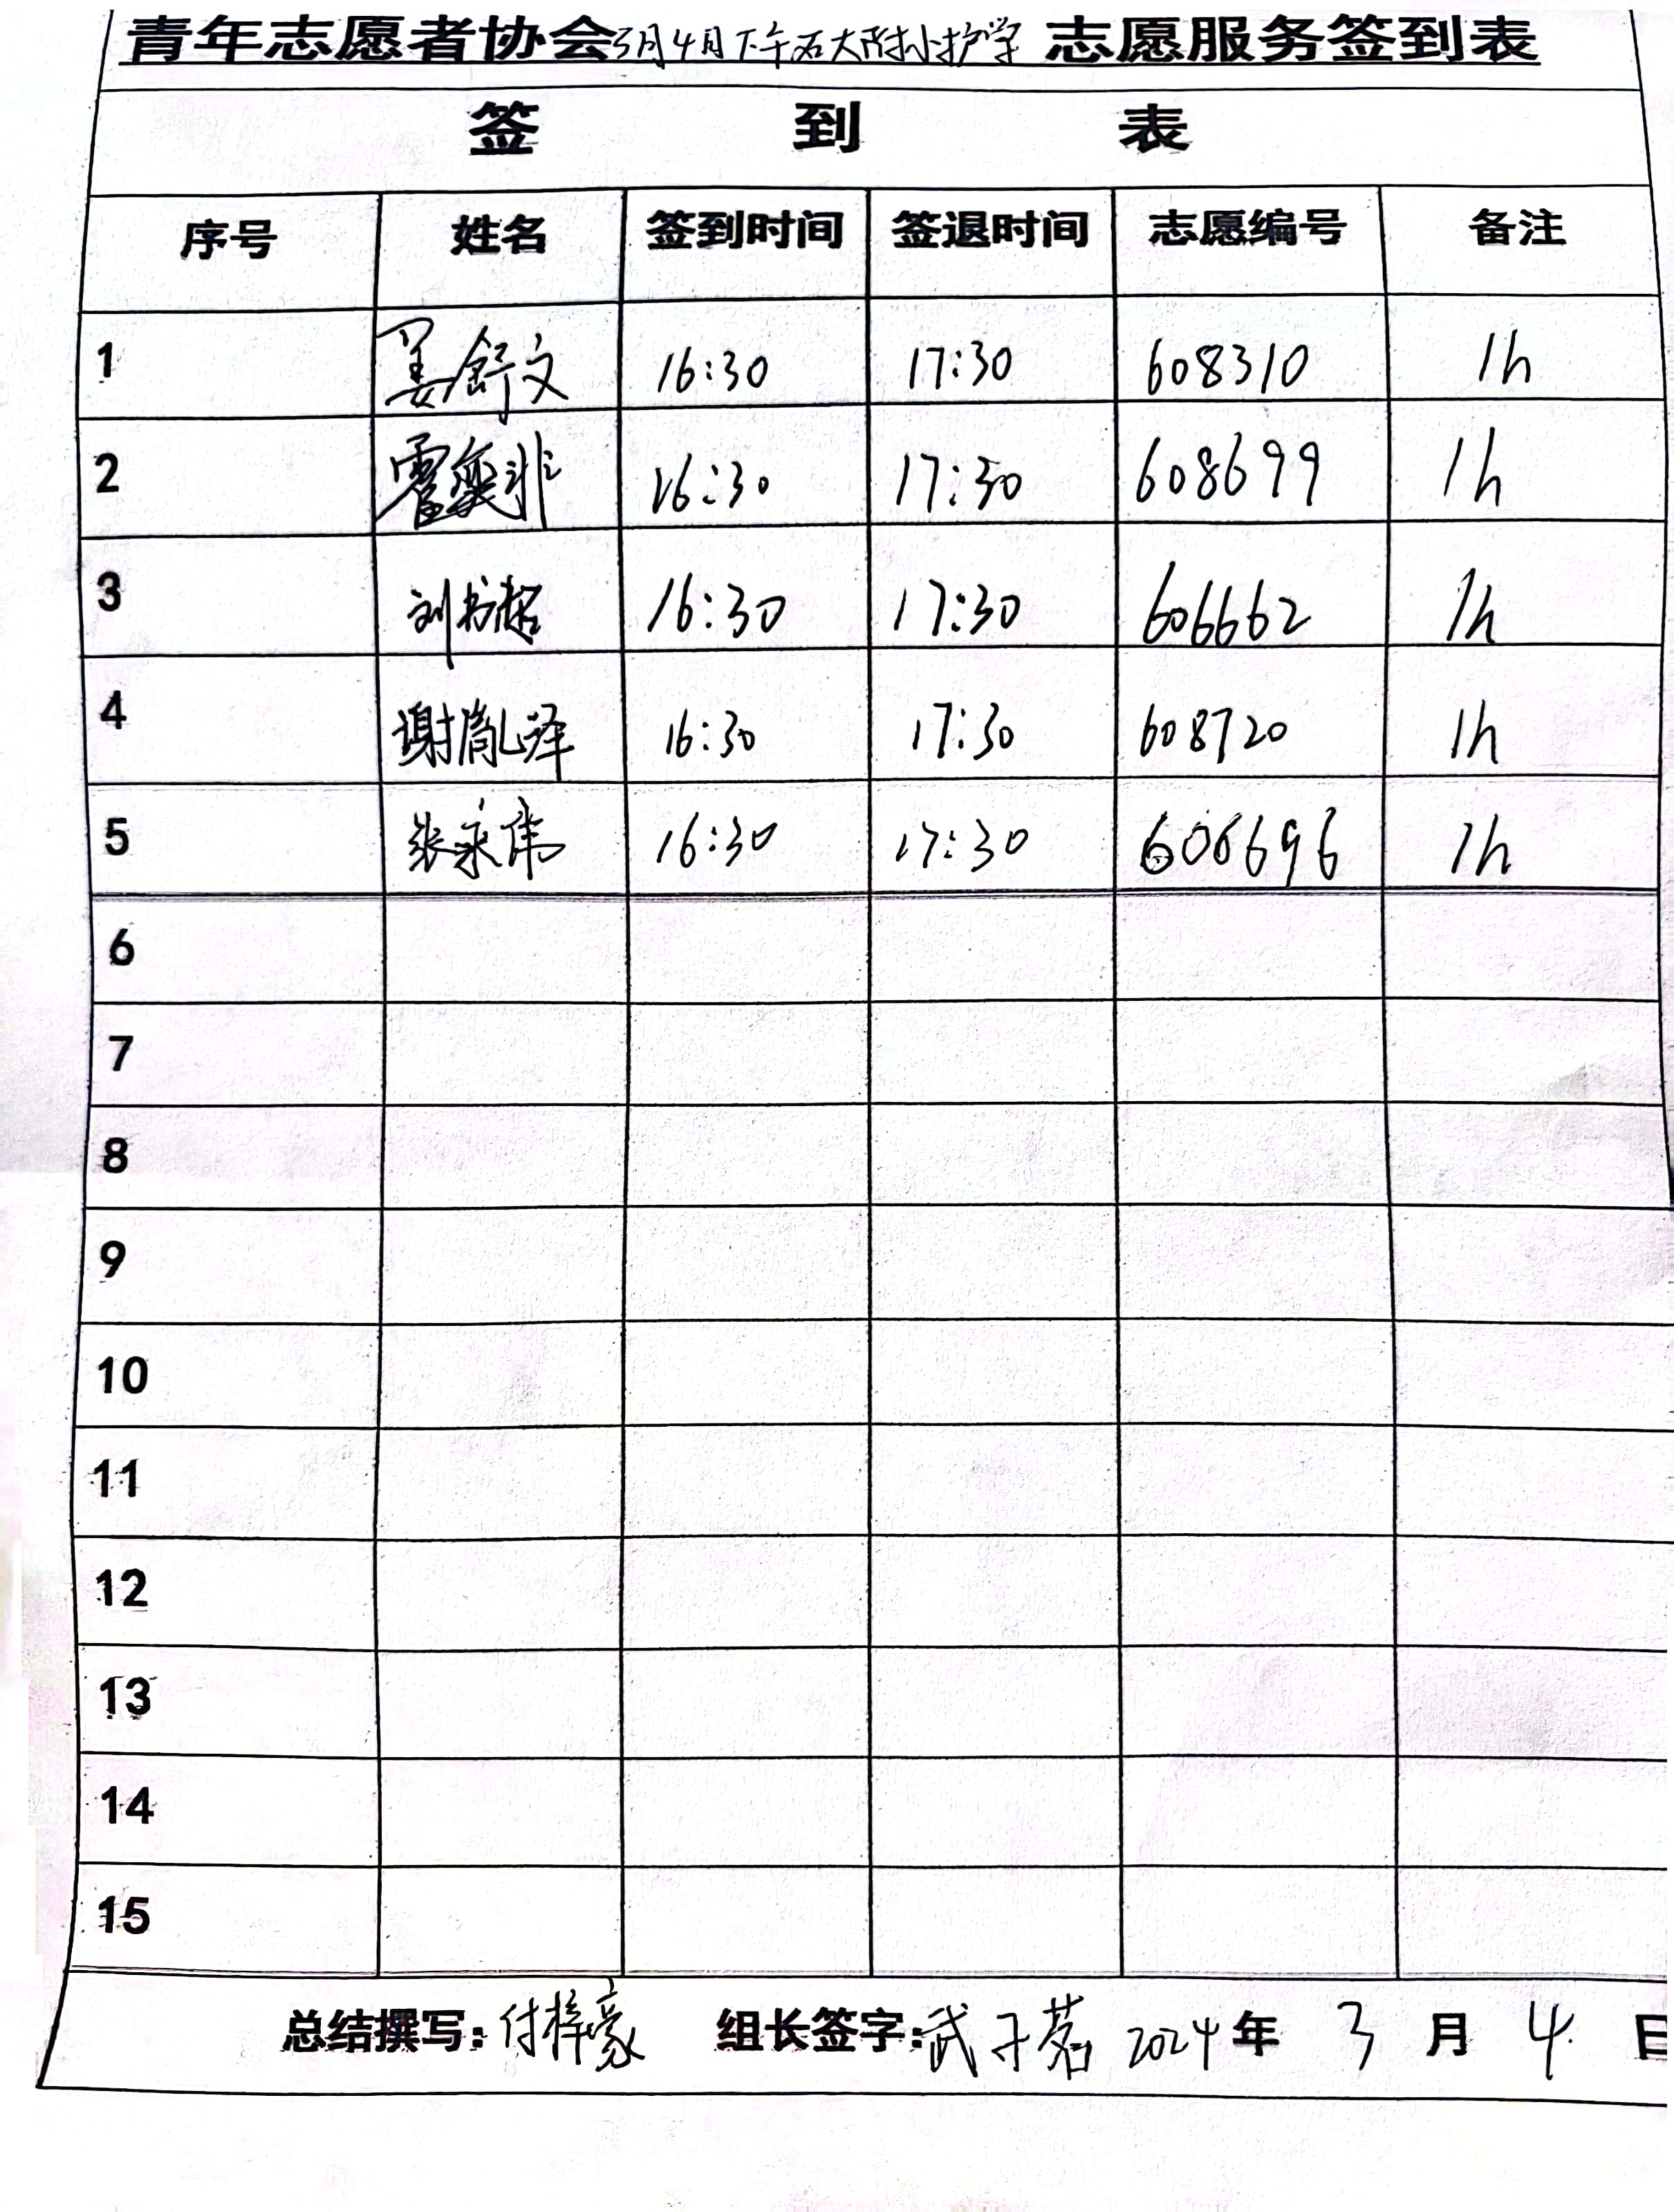 青年志愿者协会3月4日下午石大附小护学 志愿服务签到表
签 到 表
序号 姓名 签到时间 签退时间 志愿编号 备注
1 姜舒文 16:30 17:30 608310 1h
2 霍奕非 16:30 17:30 608699 1h
3 刘书超 16:30 17:30 606662 1h
4 谢胤泽 16:30 17:30 608720 1h
5 张永伟 16:30 17:30 606696 1h
6
7
8
9
10
11
12
13
14
15
总结撰写:付梓豪 组长签字:武子茗 2024年 3 月 4 日